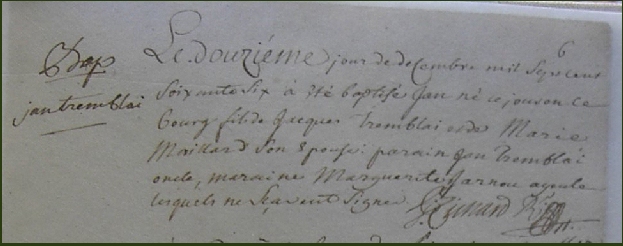 6
Bap
jan tremblai
Le douziéme jour de decembre mil sept cent
soixante six à été baptisé Jan né ce jour en ce
bourg fils de Jacques Tremblai et de Marie
Maillard son epouse parain Jan Tremblai
oncle, maraine Marguerite Jarnou ayeule
lesquels ne sçavent signe